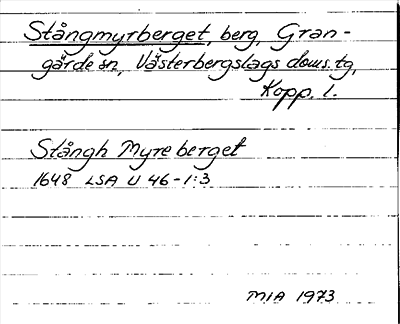 Stångmyrberget, berg, Gran-
gärde sn, Västerbergslags doms. tg,
Kopp. l.
Stångh Myre berget
1648 LSA U 46-1:3
MIA 1973